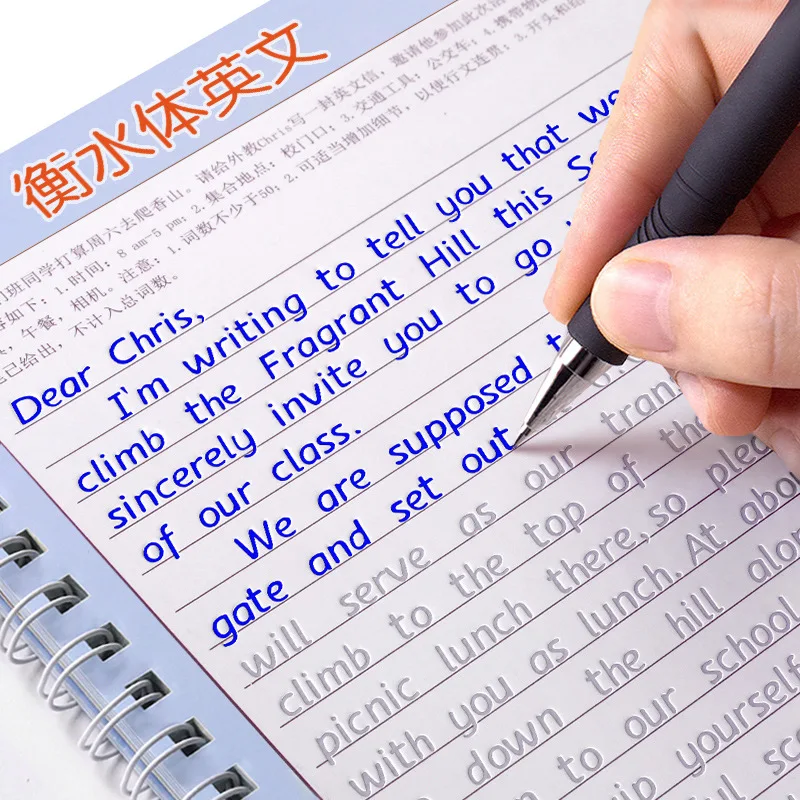 衡水体英文
们班同学打算周六去爬香山。请给外教Chris写一封英文信，邀请他参加此次活
如下：1.时间：8 am-5 pm；2.集合地点：校门口；3.交通工具：公交车；4.携带物
，午餐，相机。注意：1.词数不少于50；2.可适当增加细节，以使行文连贯；3.开头和结
已给出，不计入总词数。
Dear Chris,
I'm writing to tell you that we
climb the Fragrant Hill this
sincerely invite you to go
of our class.
We are supposed
gate and set out
will serve as our
climb to the top of
picnic lunch there, so
with you as lunch. At
down the hill
to our school
yourself